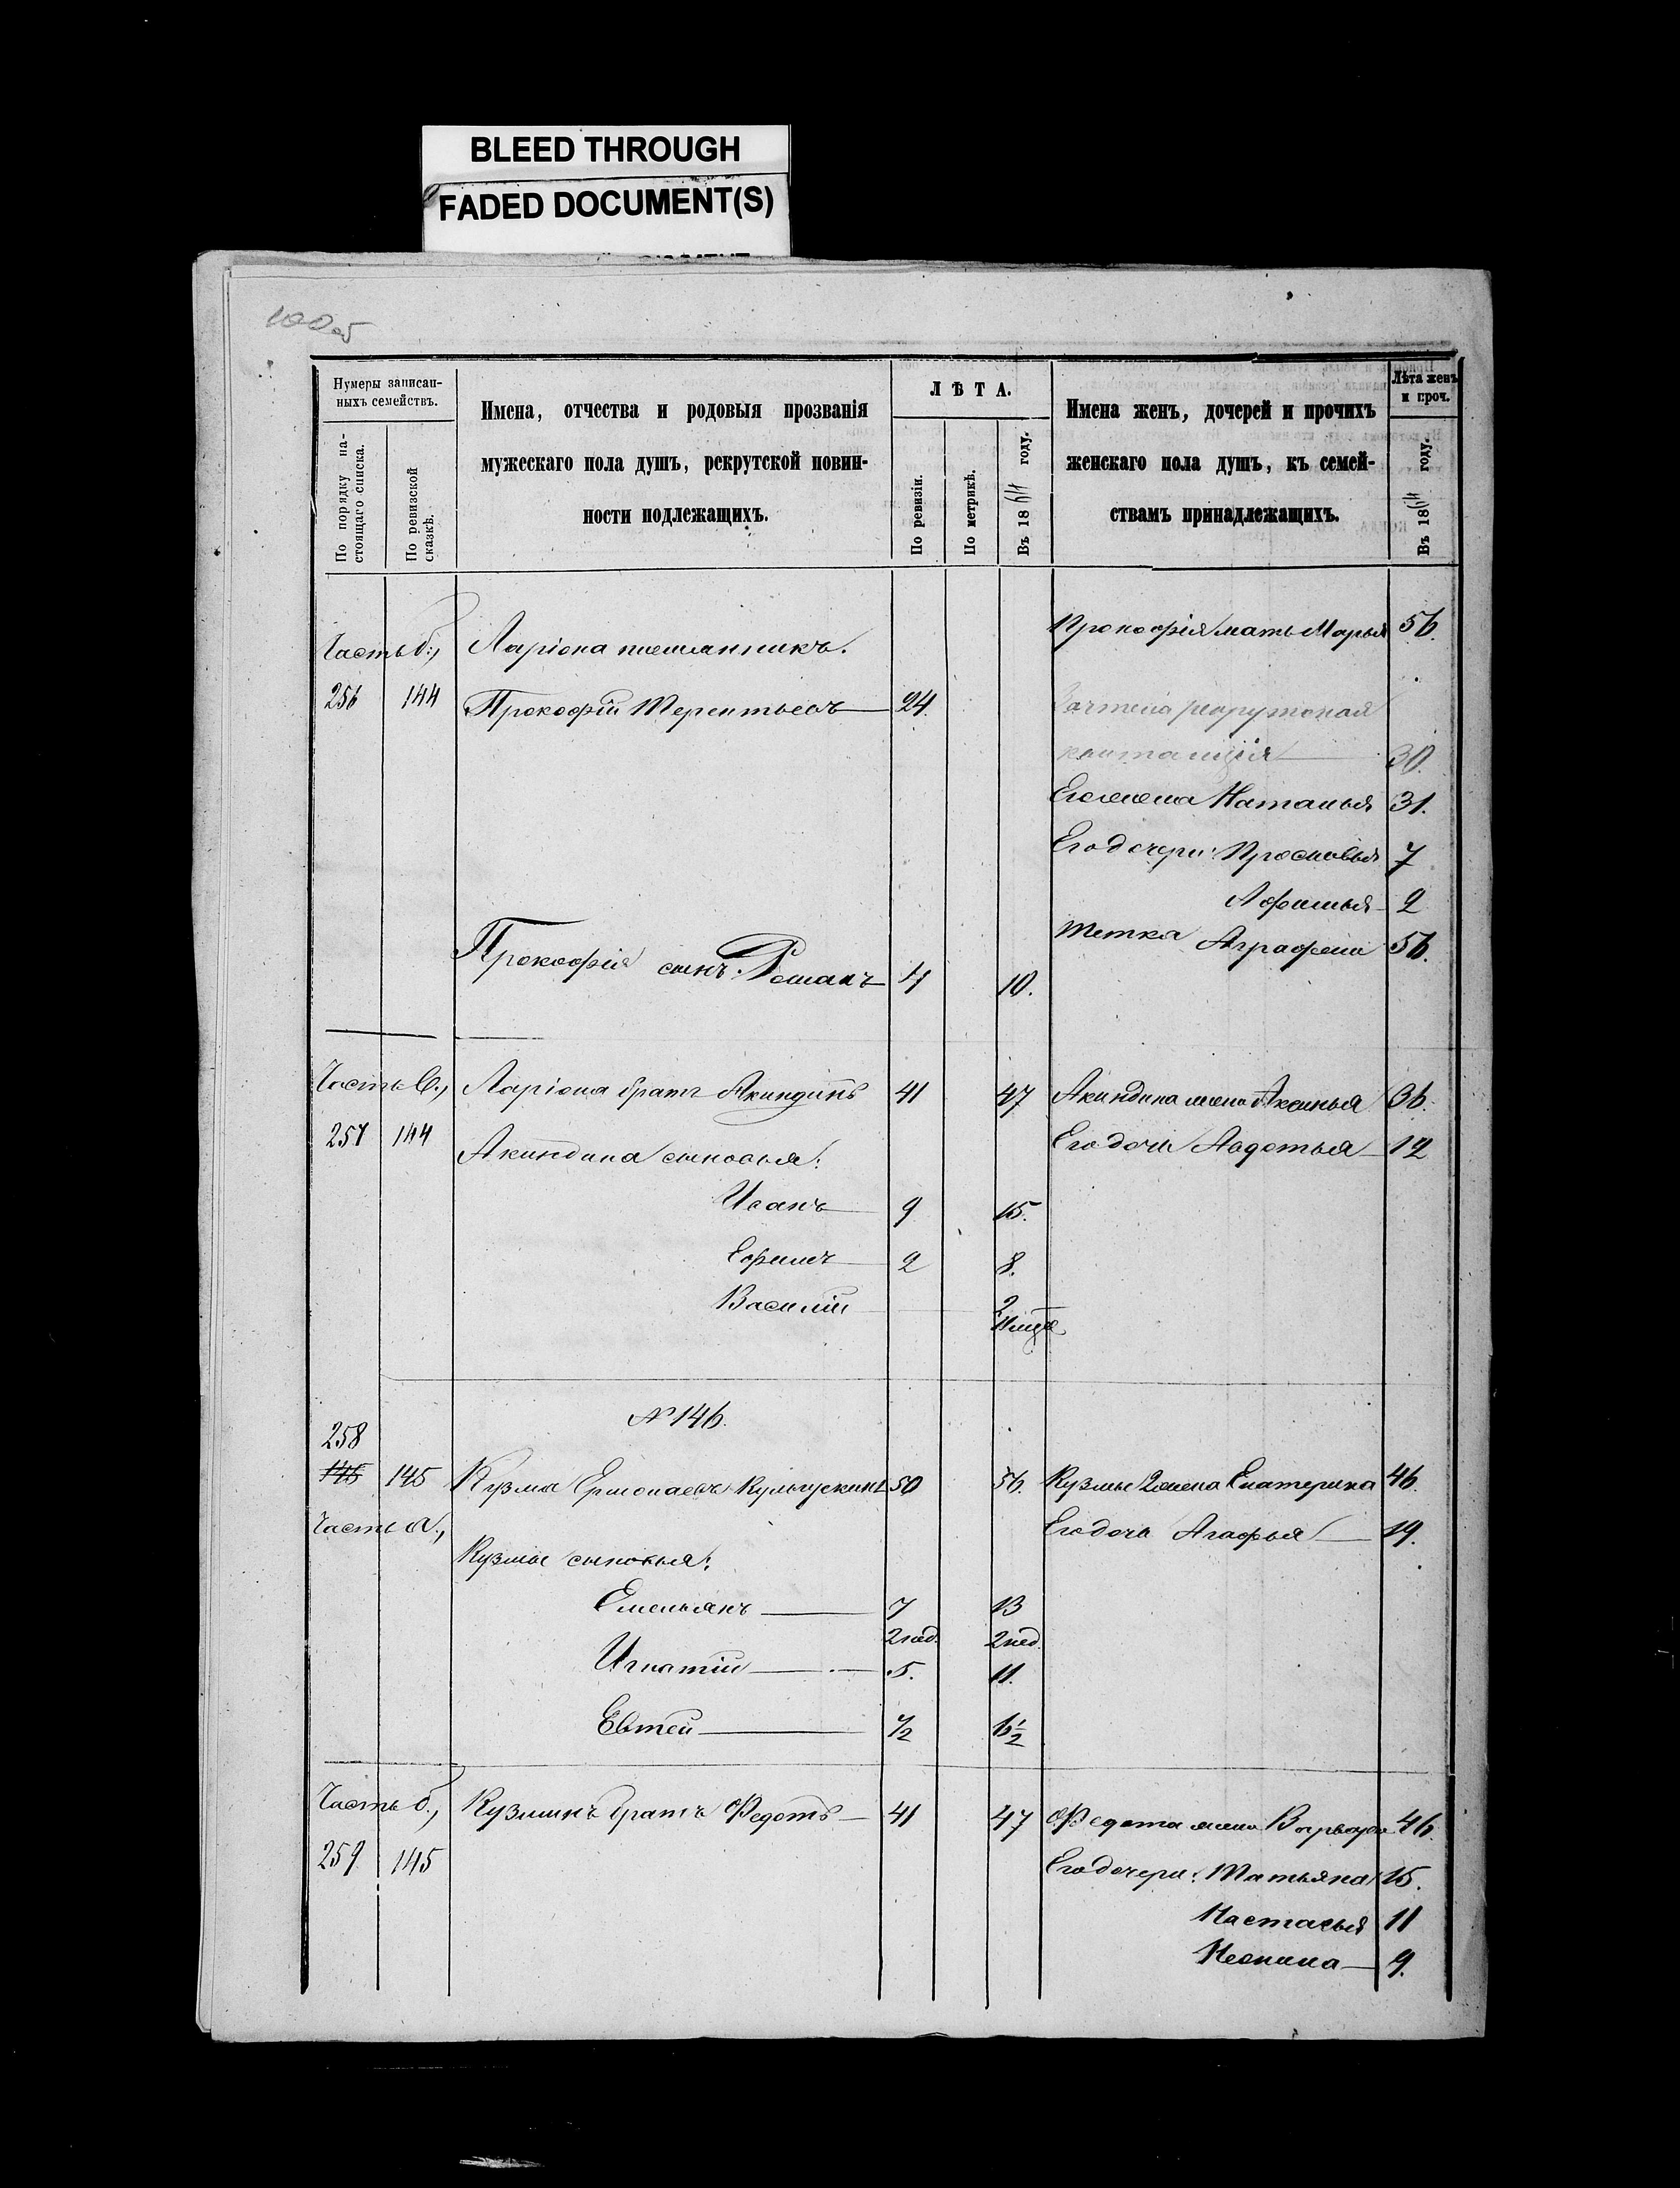 BLEED THROUGH
FADED DOCUMENT(S)
100 об
Нумеры записан-
ныхъ семействъ.
По порядку на-
стоящаго списка.
По ревизской
сказкѣ.
Имена, отчества и родовыя прозванія
мужескаго пола душъ, рекрутской повин-
ности подлежащихъ.
ЛѢТА.
По ревизіи.
По метрикѣ.
Въ 1864 году.
Имена женъ, дочерей и прочихъ
женскаго пола душъ, къ семей-
ствамъ принадлежащихъ.
Лѣта женъ
и проч.
Въ 1864 году.
Прокофія мать Марья 56.
Часть б., Ларіона племянникъ.
256 144 Прокофій Терентьевъ 24. Зачтена рекрутская
квитанція 30.
Его жена Наталья 31.
Его дочери: Просковья 7
Афимья 2
тетка Аграфена 56.
Прокофія сынъ: Романъ 4 10.
Часть в., Ларіона братъ Акиндинъ 41 47 Акиндина жена Аксинья 36.
257 144 Акиндина сыновья: Его дочь Авдотья 12
Иванъ 9 15.
Ефимъ 2 8.
Василій 2
11 мѣс.
№ 146.
258
145 145 Кузма Ермолаевъ 50 56. Кузмы 2 жена Екатерина 46.
Часть а., Его дочь Агафья 19.
Кузмы сыновья:
Емельянъ 7 13
2 нед. 2 нед.
Игнатій 5. 11.
Евтей 1/2 6 1/2
Часть б., Кузминъ братъ Федотъ 41 47 Федота жена Варвара 46.
259 145 Его дочери: Татьяна 15.
Настасья 11
Неонила 9.